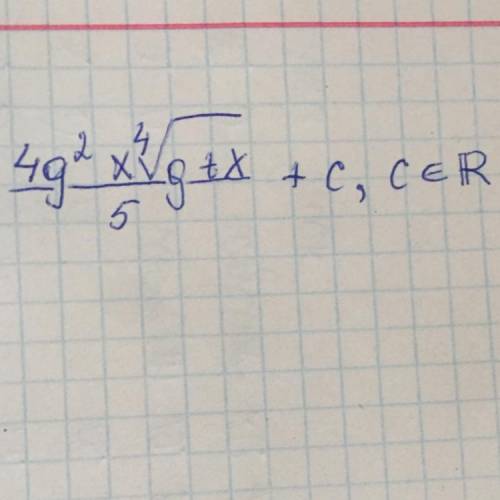 4g² x ⁴√g tx / 5 + c, c ∈ ℝ